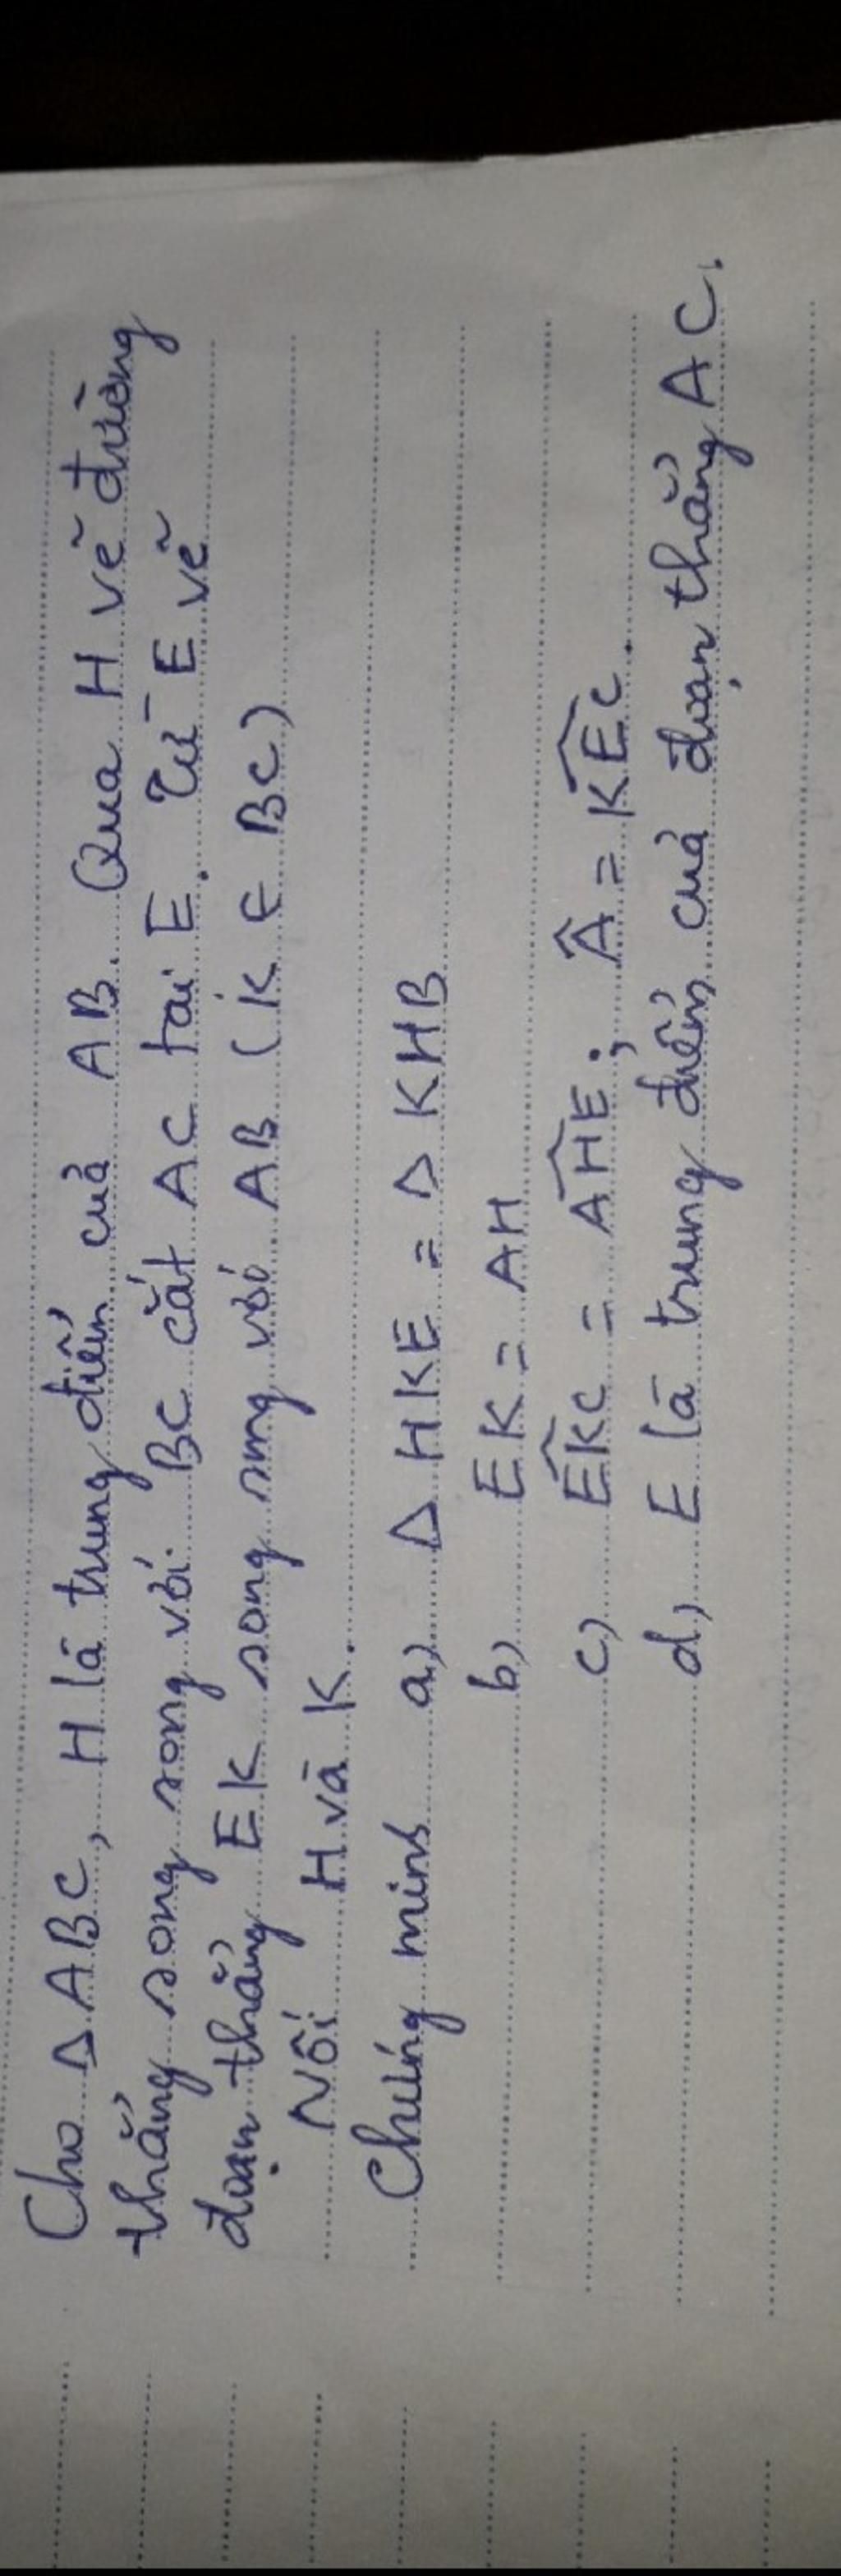 Cho Δ ABC, H là trung điểm của AB. Qua H vẽ đường
thẳng song song với BC cắt AC tại E. Từ E vẽ
đoạn thẳng EK song song với AB (K ∈ BC)
Nối H và K.
Chứng minh a) Δ HKE = Δ KHB
b) EK = AH
c) \widehat{EKC} = \widehat{AHE}; \widehat{A} = \widehat{KEC}.
d) E là trung điểm của đoạn thẳng AC.